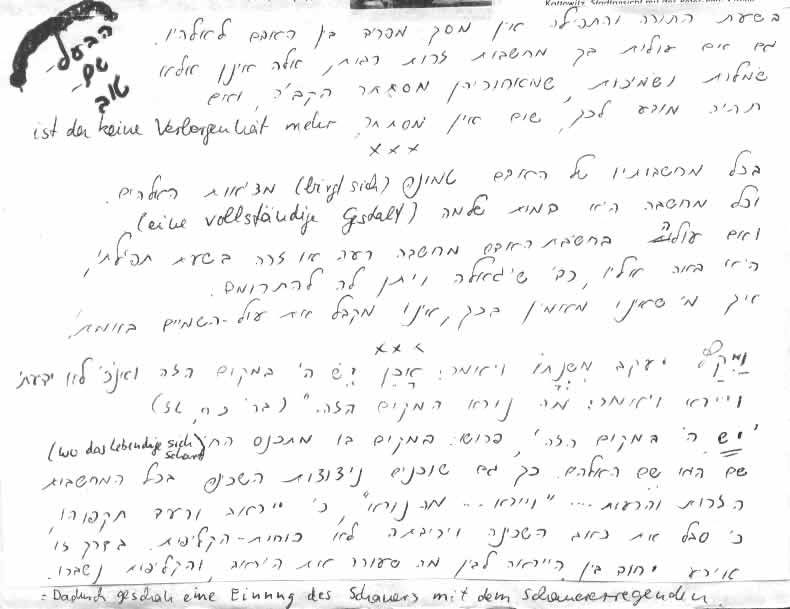 הבעל
שם
טוב
בשעת התורה והתפילה אין מסך מפריד בין האדם לאלהיו.
גם אם עולות בך מחשבות זרות רבות, אלה אינן אלא
שמלות ושמיכות, שמאחוריהן מסתתר הקב"ה, ואם
תהיה מודע לכך, שוב אין מסתתר. ist da keine Verborgenheit mehr
xxx
בכל מחשבותיו של האדם טמונה (birgt sich) מציאות האלהים.
וכל מחשבה היא דמות שלמה (eine vollständige Gestalt).
ואם עולה במחשבת האדם מחשבה רעה או זרה בשעת תפילתו,
היא באה אליו, כדי שיגאלה ויתן לה להתרומם.
איך מי שאינו מאמין בכך, אינו מקבל את עול-השמיים באמת.
xxx
וייקץ יעקב משנתו ויאמר: אכן יש ה' במקום הזה ואנכי לא ידעתי
ויירא ויאמר: מה נורא המקום הזה." (בר' כח, 16)
"יש ה' במקום הזה", פרוש: במקום בו מתכנס החי (wo das Lebendige sich schart)
שם הוא שם האלהים. כך גם שוכנים ניצוצות השכינה בכל המחשבות
הזרות והרעות .... "ויירא... מה נורא", כי יראה ורעד תקפוהו,
כי סבל את כאב השכינה ויריבתה לא כוחות-הקליפות. בדרך זו
אירע יחוד בין היראה לבין מה שעורר את היראה, והקליפות נשברו.
= Dadurch geschah eine Einung des Schauers mit dem Schauererregenden.